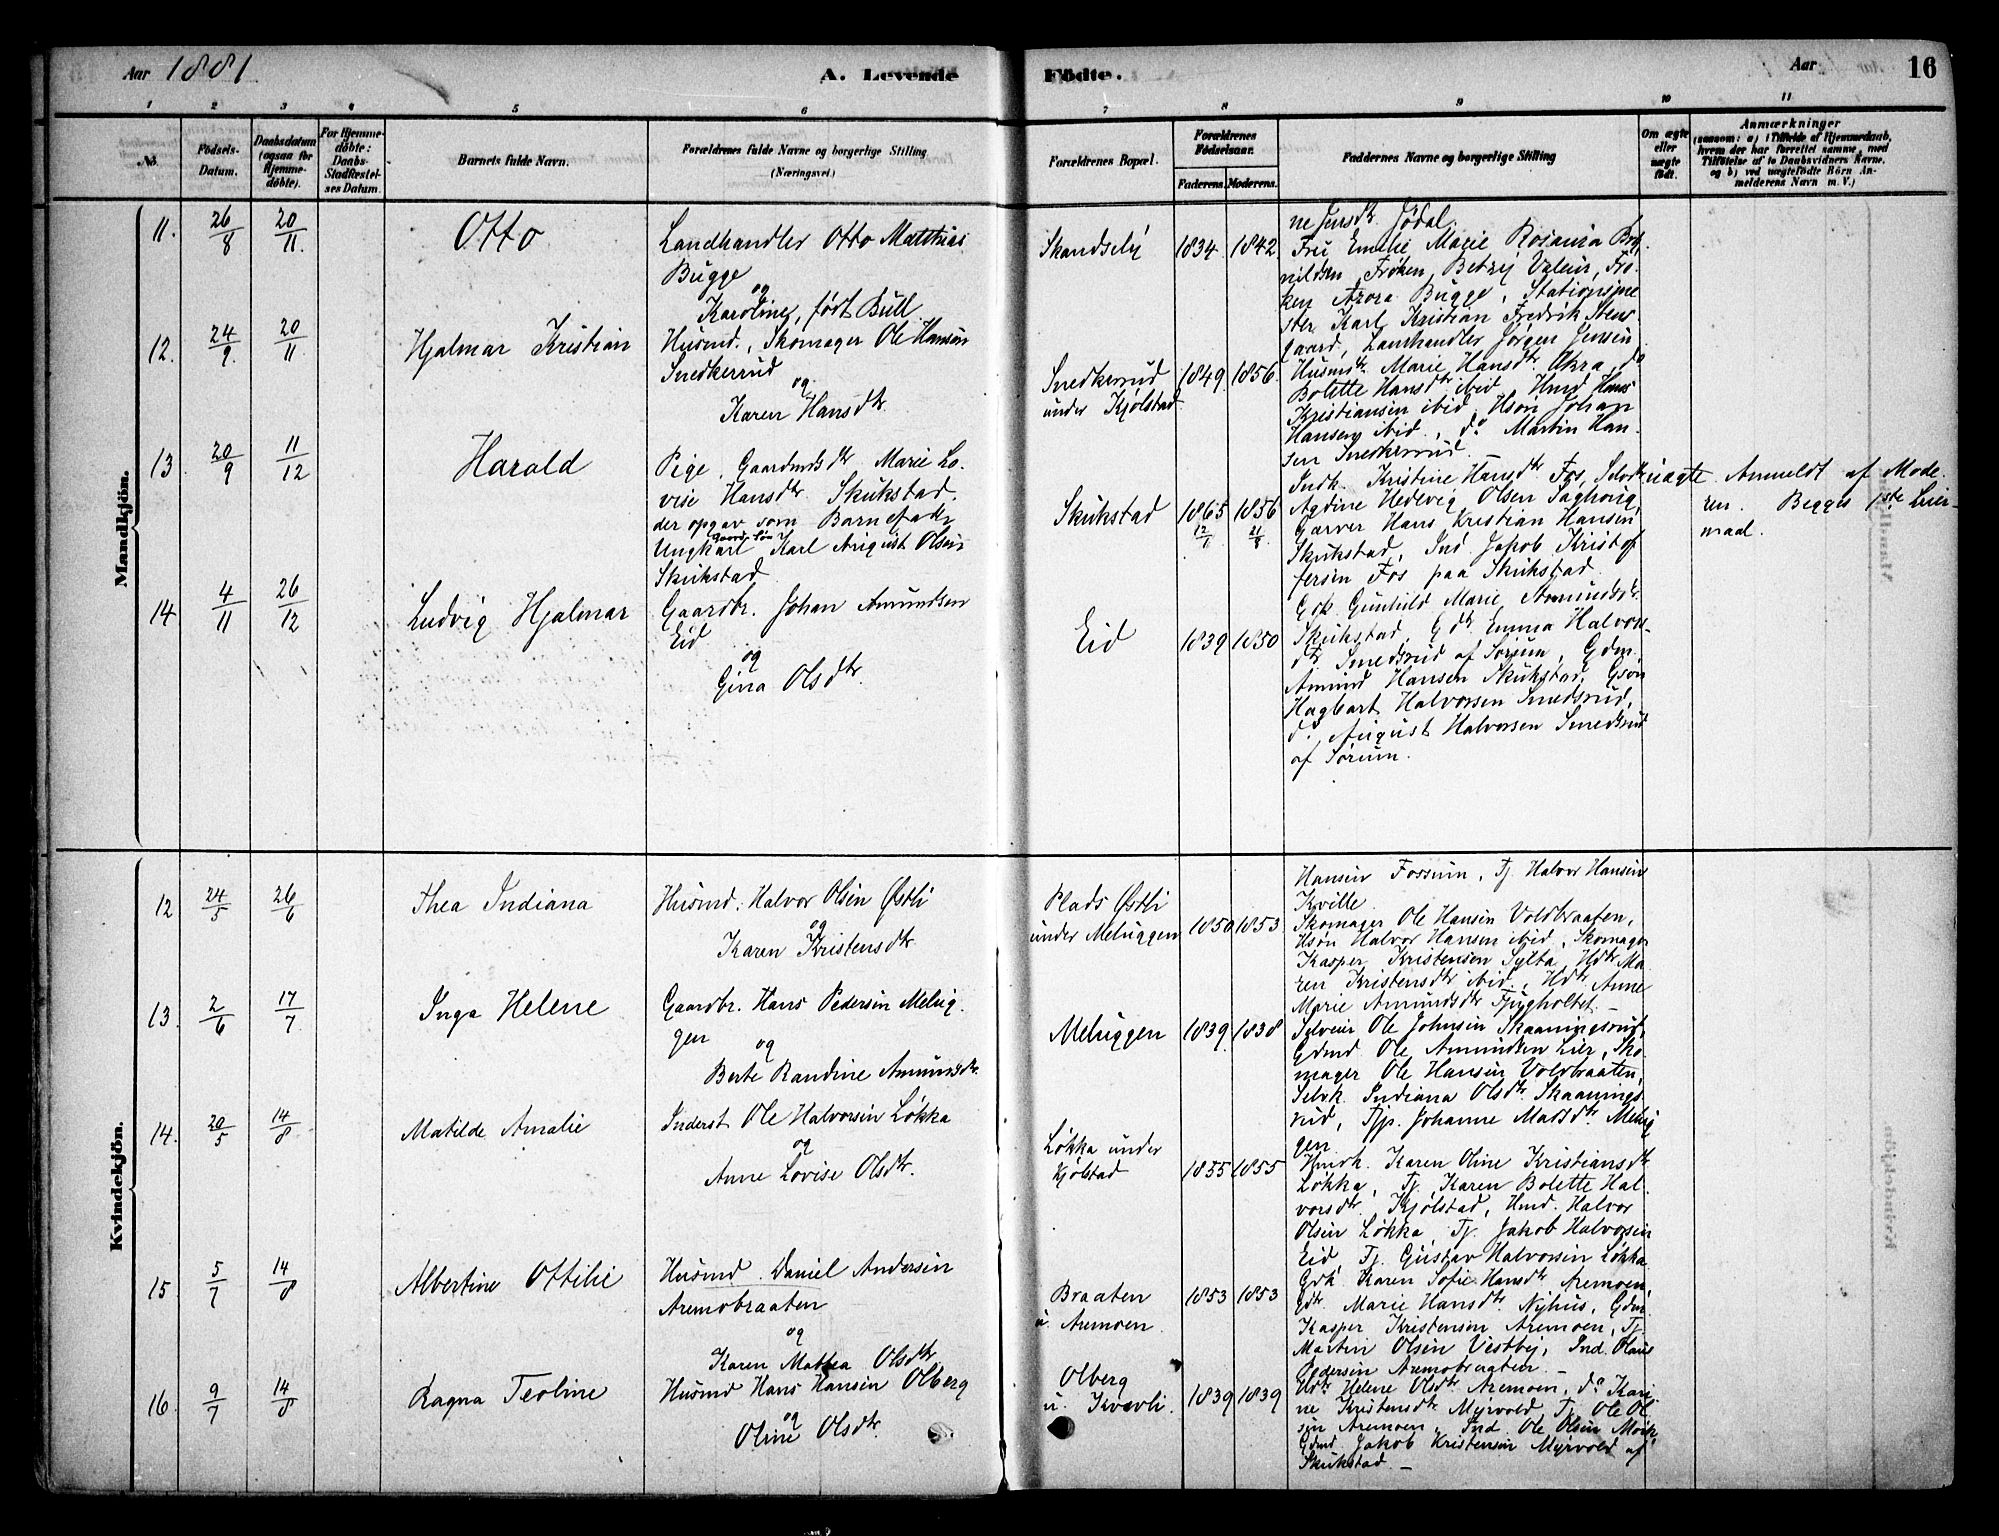 Aar 1881
A. Levende Födte.
Aar
16
1 2 3 4 5 6 7 8 9 10 11
No.
Födsels-Datum.
Daabsdatum (ogsaa for Hjemme-döbte).
For Hjemme-döbte: Daabs-Stadfæstel-ses Datum.
Barnets fulde Navn.
Forældrenes fulde Navne og borgerlige Stilling (Næringsvei.)
Forældrenes Bopæl.
Forældrenes Födselsaar.
Faderens. Moderens.
Faddernes Navne og borgerlige Stilling
Om ægte eller uægte födt.
Anmærkninger
(saasom: a) i Tilfælde af Hjemmedaab, hvem der har forrettet samme, med Tilföielse af to Daabsvidners Navne, og b) ved uægtefödte Börn An-melderens Navn m. V.)
Mandkjön.
11. 26/8 20/11. Otto
Landhandler Otto Matthias
Bugge
og
Karoline, født Bull.
Skandsely 1834 1842
ne Jensdtr Jødal.
Fru Emelie Marie Rosania Bot-
nildsen, Frøken Betzy Valeur, Frø-
ken Azora Bugge, Stationsme-
ster Karl Kristian Fredrik Stens-
gaard, Landhandler Jørgen Jensen
12. 24/9. 20/11. Hjalmar Kristian
Husmd., Skomager Ole Hansen
Snedkerrud
og
Karen Hansdtr
Snedkerrud
under Kjølstad
1849 1856.
Husmdtr Marie Hansdtr Ukra, do
Bolette Hansdtr ibid, Hmd Hans
Kristiansen ibid, Hsøn Johan
Hansen ibid, do Martin Han-
sen Snedkerrud.
13 20/9 11/12 Harald
Pige, Gaardmdsdtr Marie Lo-
vise Hansdtr Skukstad.
der opgav som Barnefader
Ungkarl Gaardsøn Karl August Olsen
Skukstad
Skukstad 1865 12/1 1856 21/8
Indk. Kristine Hansdtr Fos, Selvdtr
Agdine Hedevig Olsen
Garver Hans Kristian Hansen
Skukstad, Ind Jakob Kristof
fersen Fos paa Skukstad.
uægte
Anmeldt af Mode-
ren. Begges 1ste Leier-
maal.
14 4/11 26/12 Ludvig Hjalmar
Gaardbr. Johan Amundsen
Eid
og
Gina Olsdtr
Eid 1839 1850
Gdk. Gunhild Marie Amundsdtr.
Skukstad, Gdtr Emma Halvors-
dtr. Smedsrud af Sørum, Gdm.
Amund Hansen Skukstad, Gsøn
Hagbart Halvorsen Smedsrud,
do. August Halvorsen Smedsrud
af Sørum.
Kvindekjön.
12 24/5 26/6 Thea Indiana
Husmd. Halvor Olsen Østli
og
Karen Kristensdtr
Plads Østli
under Meluggen
1850 1853
Hansen Fossum, Tj. Halvor Hansen
Kville.
Skomager Ole Hansen Voldbraaten,
Hsøn Halvor Hansen ibid, Skomager
Kasper Kristensen Sylta, Hdtr Ma-
ren Kristensdtr ibid., Hdtr. Anne
Marie Amundsdtr Fjugholtet. —
13. 2/6 17/7 Inga Helene
Gaardbr. Hans Pedersen Melug-
gen
og
Berte Randine Amundsdtr.
Meluggen 1839. 1838
Selveier Ole Johnsen Skaaningsrud,
Gdmd Ole Amundsen Lier, Sko-
mager Ole Hansen Voldbraaten,
Selvk. Indiana Olsdtr Skaanings-
rud, Tjp. Johanne Madsdtr. Melug
gen
14. 20/5 14/8 Matilde Amalie
Inderst Ole Halvorsen Løkka
og
Anne Lovise Olsdtr.
Løkka under
Kjølstad
1855 1855
Hmdk. Karen Oline Kristiansdtr
Løkka, Tj. Karen Bolette Hal-
vorsdtr. Kjølstad, Hmd. Halvor
Olsen Løkka, Tj. Jakob Halvorsen
Eid Tj. Gustav Halvorsen Løkka.
15 5/7 14/8 Albertine Ottilie
Husmd. Daniel Andersen
Aremobraaten
og
Karen Mathea Olsdtr
Braaten
u. Aremoen.
1853 1853
Gdk. Karen Sofie Hansdtr Aremoen,
Gdtr. Marie Hansdtr. Nyhus, Gdm.
Kasper Kristensen Aremoen, Tj.
Martin Olsen Vestby, Ind. Olaus
Pedersen Aremobraaten. —
16. 9/7 14/8 Ragna Teoline
Husmd Hans Hansen Olberg
og
Oline Olsdtr
Olberg
u. Kvevli.
1839 1839
Hdtr Helene Olsdtr. Aremoen, do Kari-
ne Kristensdtr Myrvold Tj. Ole Ol-
sen Aremoen, Ind. Ole Olsen Mork,
Gdmd. Jakob Kristensen Myrvold af
Skukstad. —